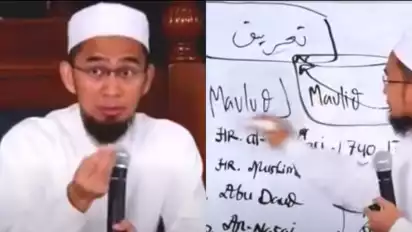 تعريف
Mavlud Mavlid
HR. al- ri - 1740
HR. Muslim
Abu Daud
An-Nasai